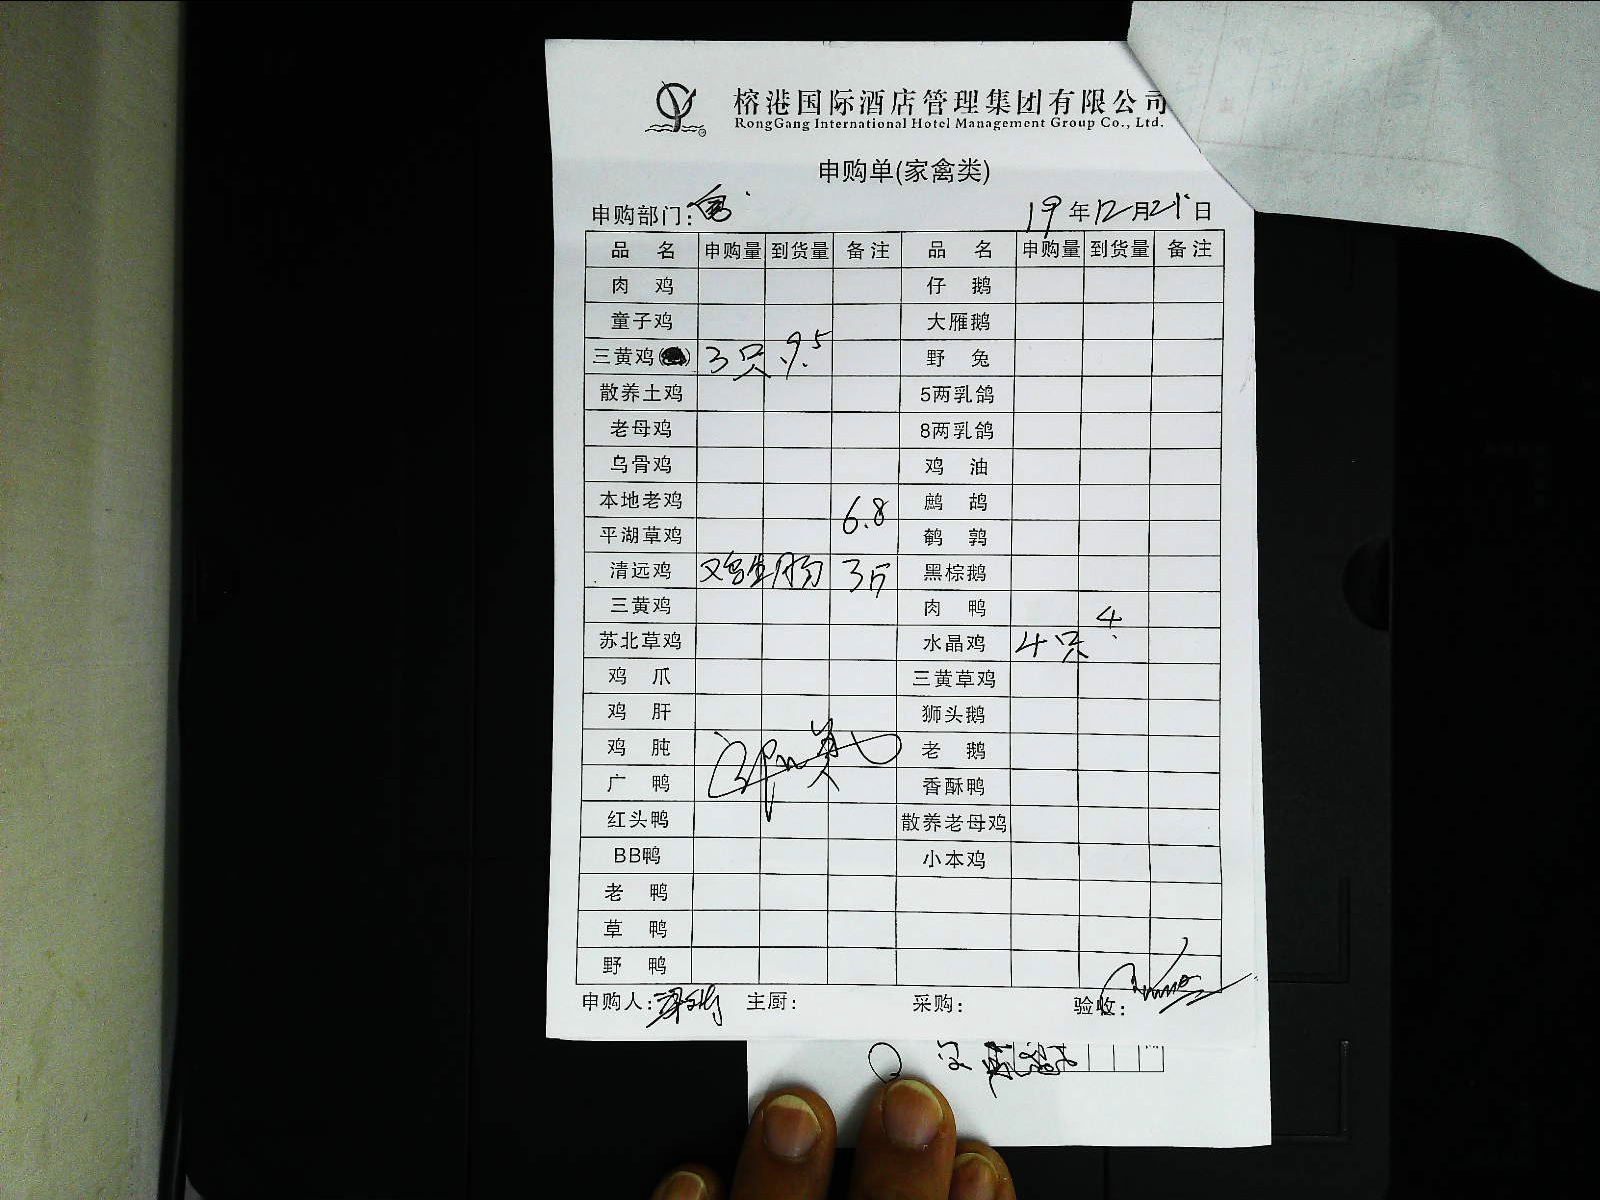 榕港国际酒店管理集团有限公司
RongGang International Hotel Management Group Co., Ltd.
申购单(家禽类)
申购部门: 19年12月21日
品 名 申购量 到货量 备注 品 名 申购量 到货量 备注
肉 鸡 仔 鹅
童子鸡 大雁鹅
三黄鸡( ) 3只 9.5 野 兔
散养土鸡 5两乳鸽
老母鸡 8两乳鸽
乌骨鸡 鸡 油
本地老鸡 6.8 鹧 鸪
平湖草鸡 鹌 鹑
清远鸡 鸡生肠 3斤 黑棕鹅
三黄鸡 肉 鸭
苏北草鸡 水晶鸡 4只 4
鸡 爪 三黄草鸡
鸡 肝 狮头鹅
鸡 肫 老 鹅
广 鸭 香酥鸭
红头鸭 散养老母鸡
BB鸭 小本鸡
老 鸭
草 鸭
野 鸭
申购人: 主厨: 采购: 验收: